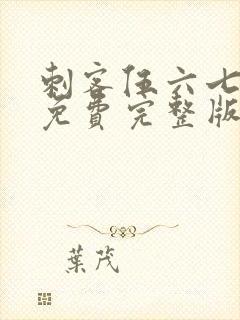 刺客伍六七
免費完整版
葉茂